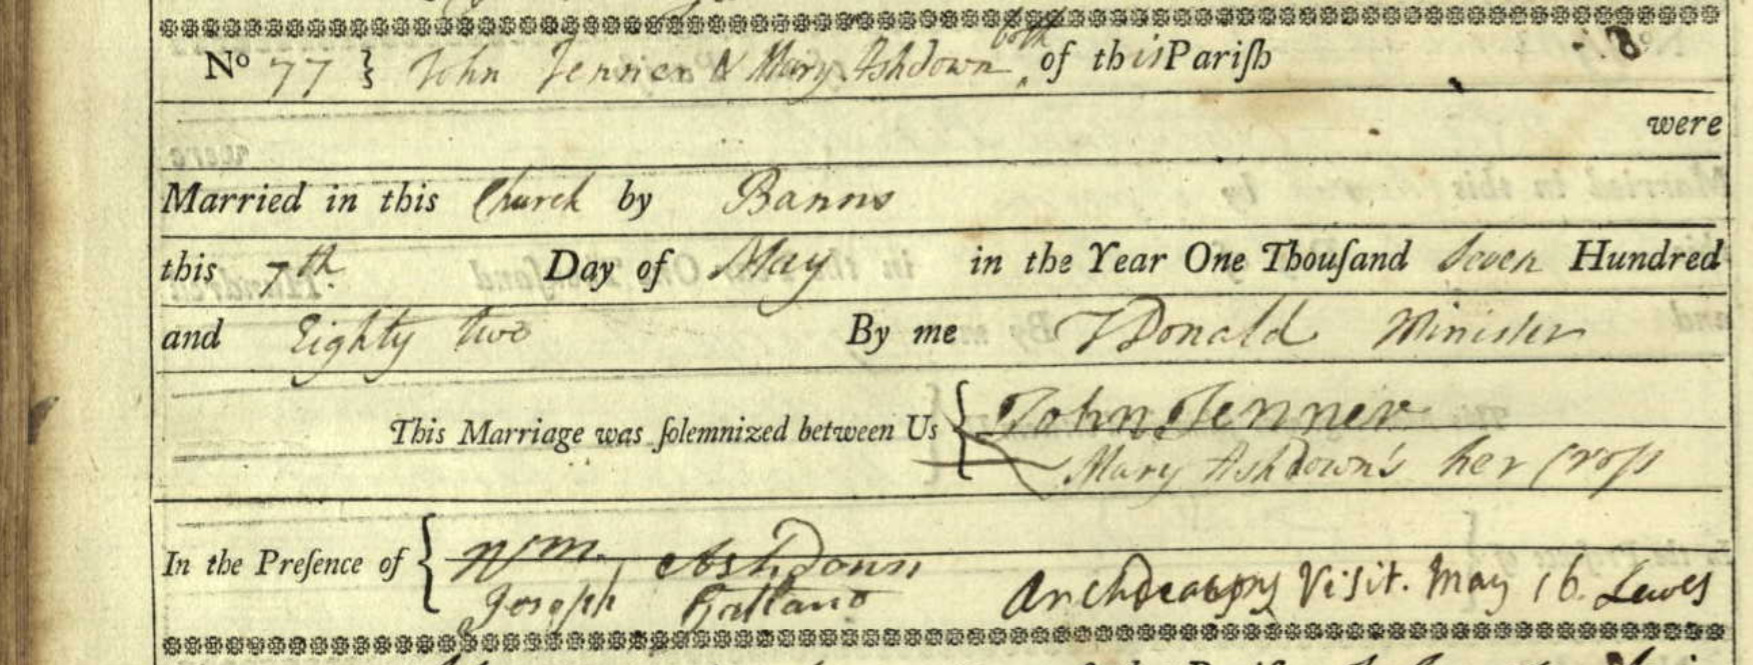 No 77 } John Jenner & Mary Ashdown both of this Pariſh
were
Married in this Church by Banns
this 7th Day of May in the Year One Thouſand Seven Hundred
and Eighty two By me Donald Minister
This Marriage was ſolemnized between Us { John Jenner
Mary Ashdown's her Croſs
In the Preſence of { Wm. Ashdown
Joseph
Archdeacons Visit. May 16. Lewes